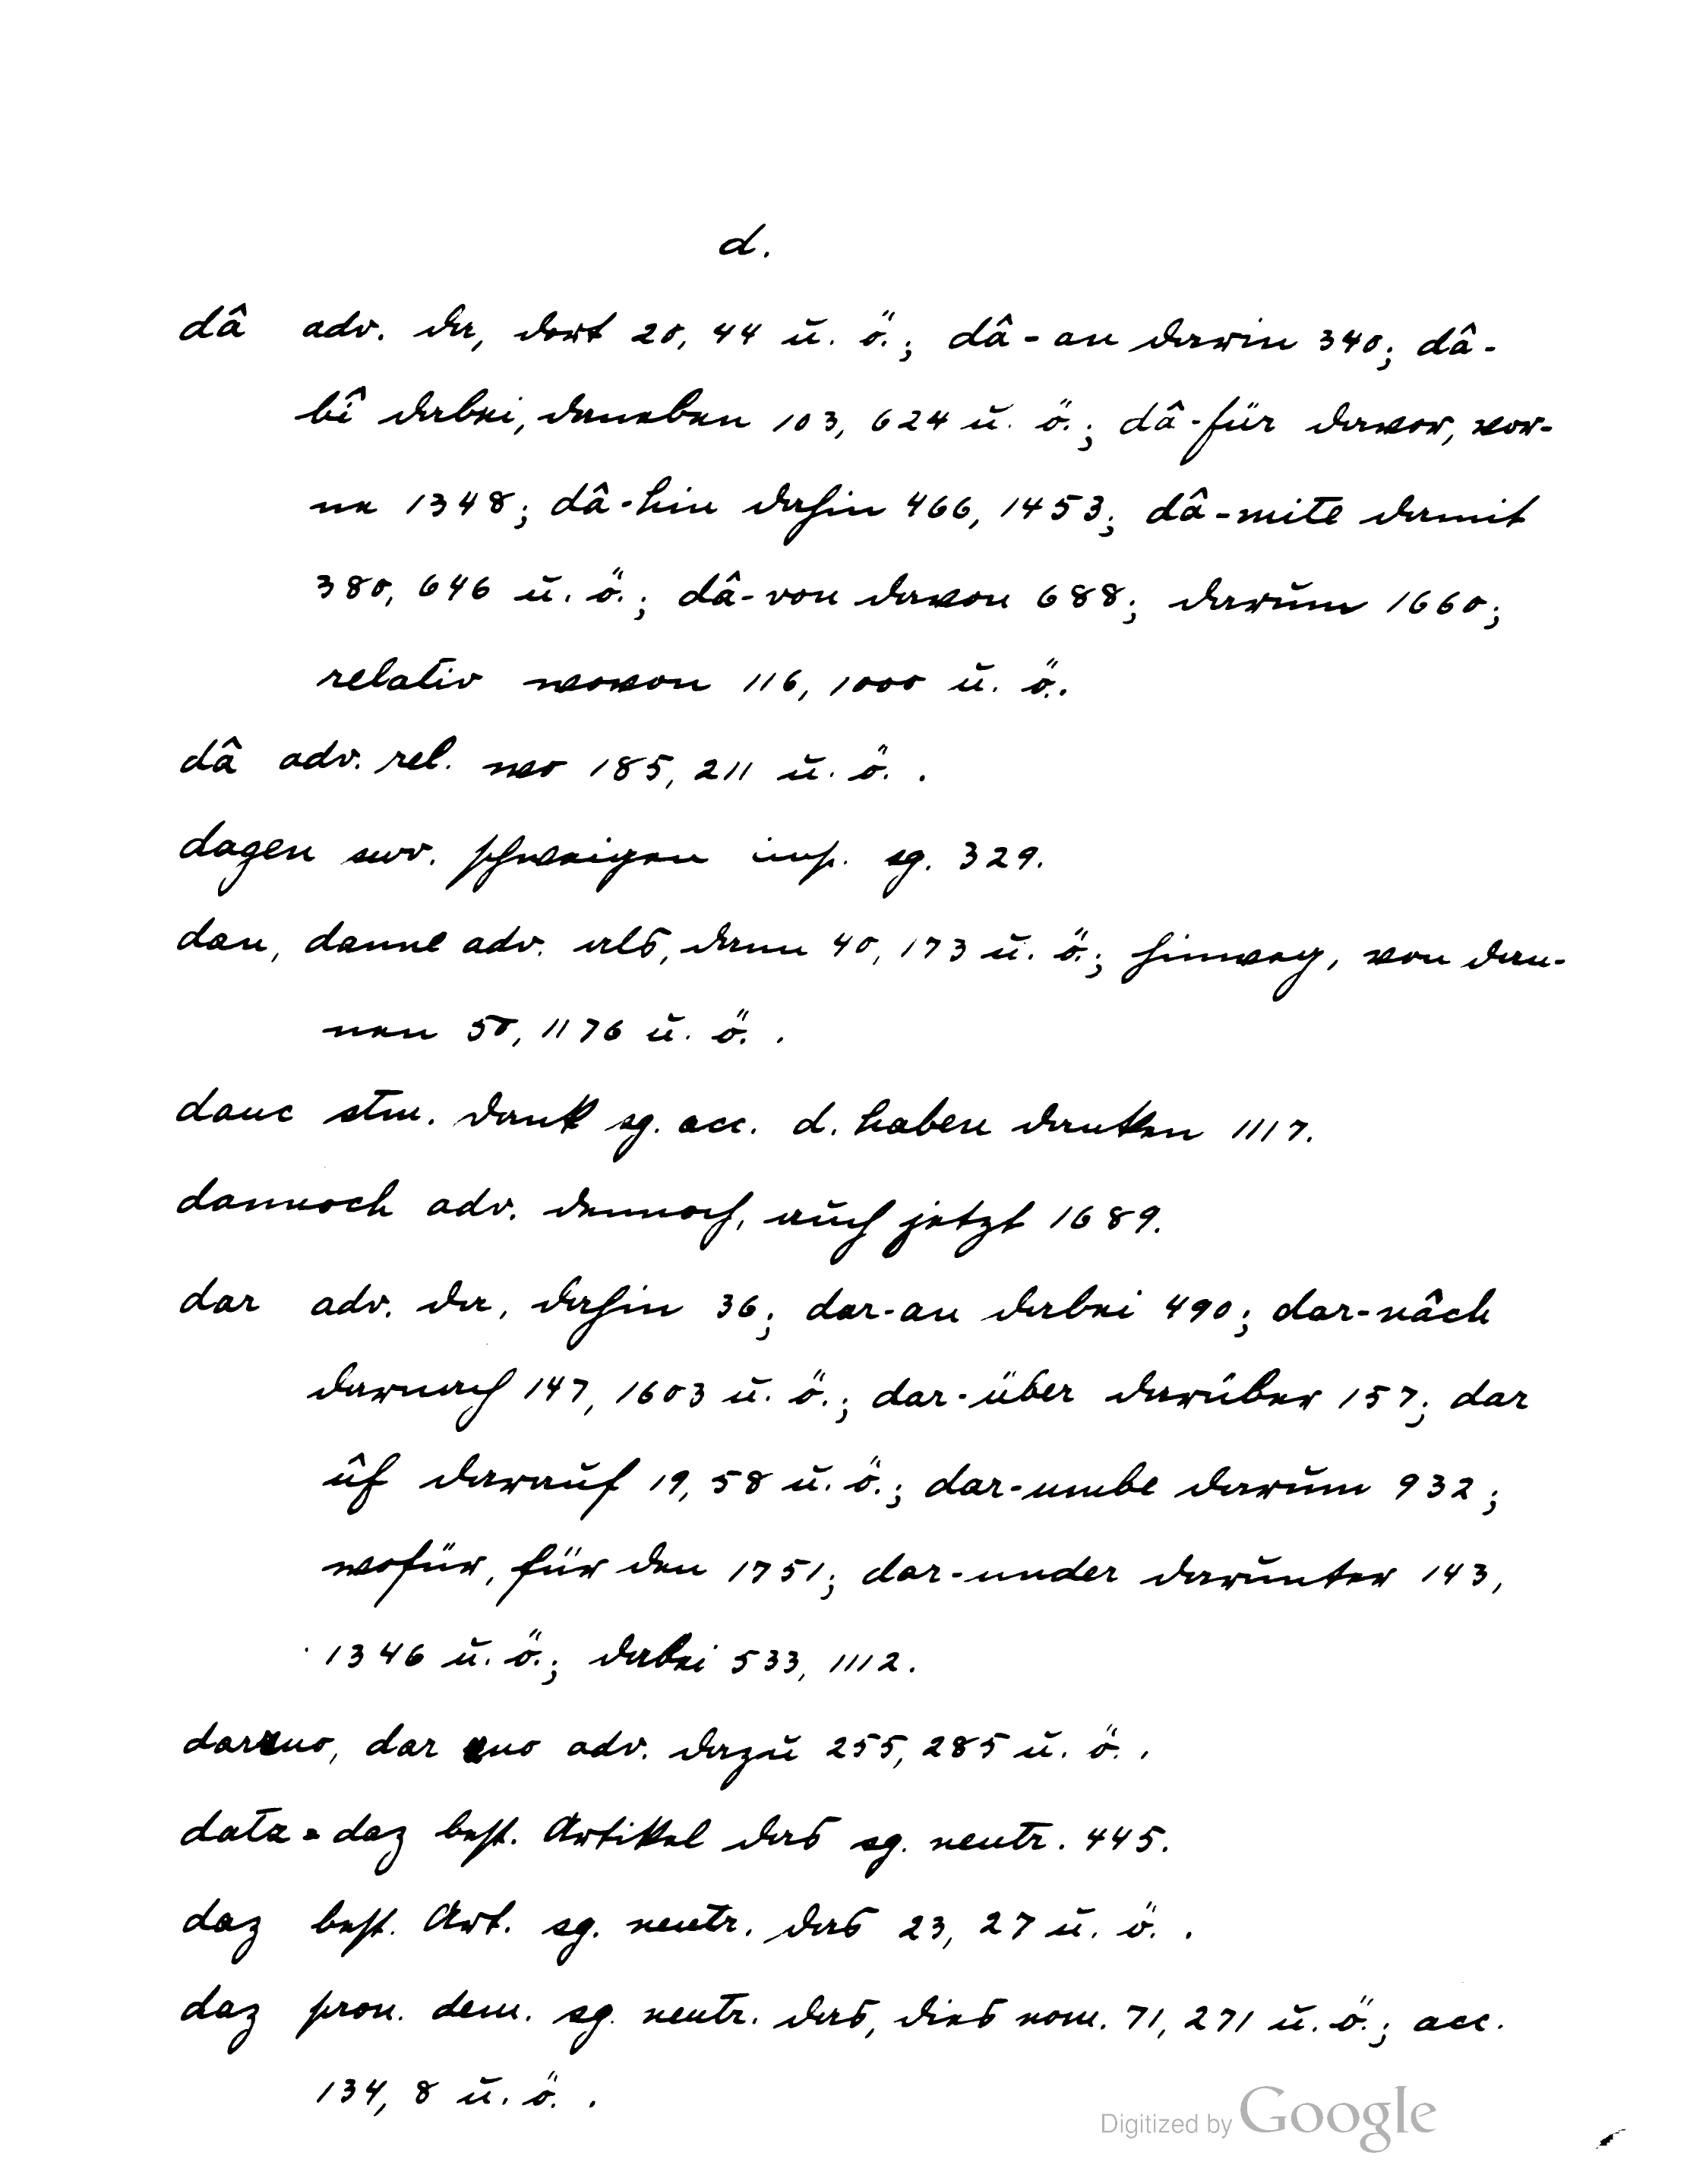 d.
dâ adv. da, dort 20, 44 u. ö.; dâ-an darin 340; dâ-
bî dabei, daneben 103, 624 u. ö.; dâ-für davor, vor-
ne 1348; dâ-hin dahin 466, 1453; dâ-mite damit
380, 646 u. ö.; dâ-von davon 688; darum 1660;
relativ wovon 116, 1000 u. ö.
dâ adv. rel. wo 185, 211 u. ö. .
dagen swv. schweigen imp. sg. 329.
dan, danne adv. als, denn 40, 173 u. ö.; hinweg, von dan-
nen 50, 1176 u. ö. .
danc stm. Dank sg. acc. d. haben danken 1117.
dannoch adv. dennoch, auch jetzt 1689.
dar adv. da, dahin 36; dar-an dabei 490; dar-nâch
darnach 147, 1603 u. ö.; dar-über darüber 157; dar
ûf darauf 19, 58 u. ö.; dar-umbe darum 932;
wofür, für den 1751; dar-under darunter 143,
1346 u. ö.; dabei 533, 1112.
darzuo, dar zuo adv. dazu 255, 285 u. ö. .
datz = daz best. Artikel das sg. neutr. 445.
daz best. Art. sg. neutr. das 23, 27 u. ö. .
daz pron. dem. sg. neutr. das, dies nom. 71, 271 u. ö.; acc.
134, 8 u. ö. .
Digitized by Google